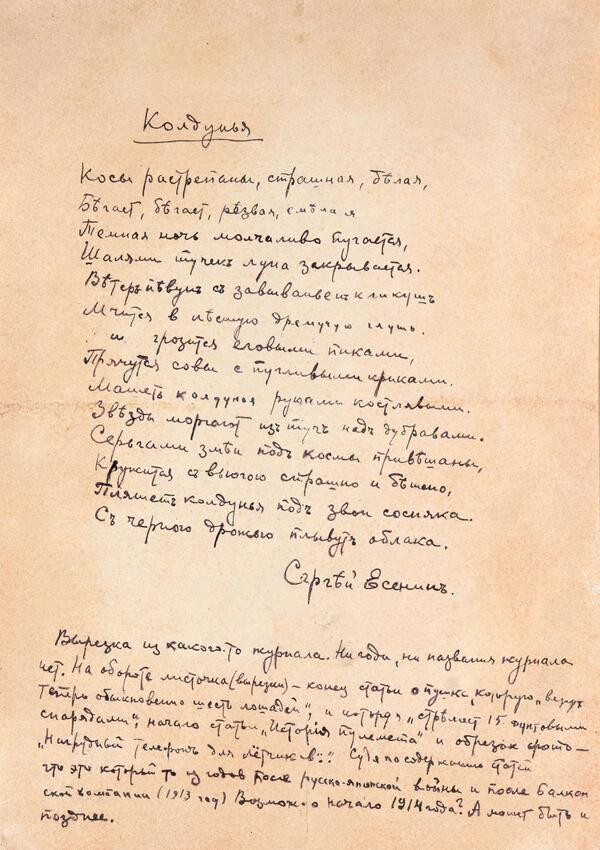 Колдунья
Косы растрепаны, страшная, бѣлая,
Бѣгает, бѣгает, резвая, смѣлая
Темная ночь молчаливо пугается,
Шалями тучекъ луна закрывается.
Вѣтеръ пѣвунъ съ завываньемъ кликушъ
Мчится в лѣсную дремучую глушь.
и грозится еловыми пиками,
Прячутся совы с пугливыми криками.
Машетъ колдунья руками костлявыми.
Звѣзды моргают изъ тучъ надъ дубравами.
Серьгами змѣи подъ космы привѣшаны,
Кружится съ вьюгою страшно и бѣшено,
Пляшетъ колдунья подъ звон сосняка.
Съ черною дрожью плывутъ облака.
Сѣргѣй Есенинъ.
Вырезка из какого-то журнала. Ни года, ни названия журнала
нет. На обороте листочка (вырезки) – конец статьи о пушке, которую „везут
теперь обыкновенно шесть лошадей" и которая „стрѣляет 15 фунтовыми
снарядами", начало статьи „Исторія пулемета" и обрезок фото –
„Нагрудный телефонъ для лётчиков". Судя по содержанию статей
что это который то из годов после русско-японской войны и после Балкан
ской компании (1913 год) Возможно начало 1914 года? А может быть и
позднее.